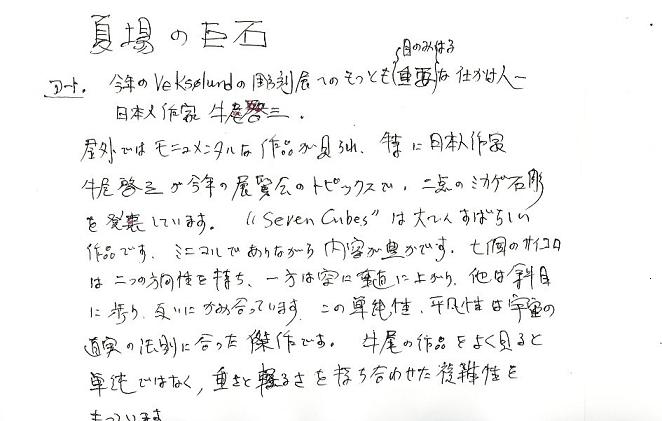 夏場の巨石
目のみはる
コート。今年のVeksølundの彫刻展でのもっとも{重要}な仕かけ人ー
日本人作家 牛尾啓三.
屋外ではモニュメンタルな作品が見られ、特に日本人作家
牛尾啓三が今年の展覧会のトピックスで、二点のミカゲ石彫
を発表しています。 "Seven Cubes" は大へんすばらしい
作品です. ミニマルでありながら内容が豊かです. 七個のサイコロ
は二つの方向性を持ち、一方は空に垂直に上がり、他は斜目
に歩り、互いにかみ合っています. この単純性、平凡性は宇宙の
真実の法則に合った傑作です。 牛尾の作品をよく見ると
単純ではなく, 重さと軽るさを持ち合わせた複雑性を
もっています